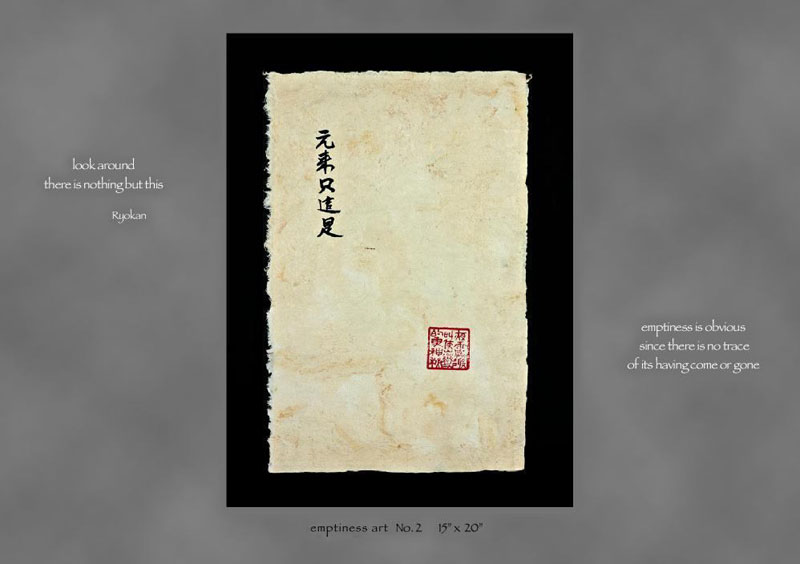 look around
there is nothing but this
Ryokan
元来只這是
emptiness is obvious
since there is no trace
of its having come or gone
emptiness art No. 2 15" x 20"